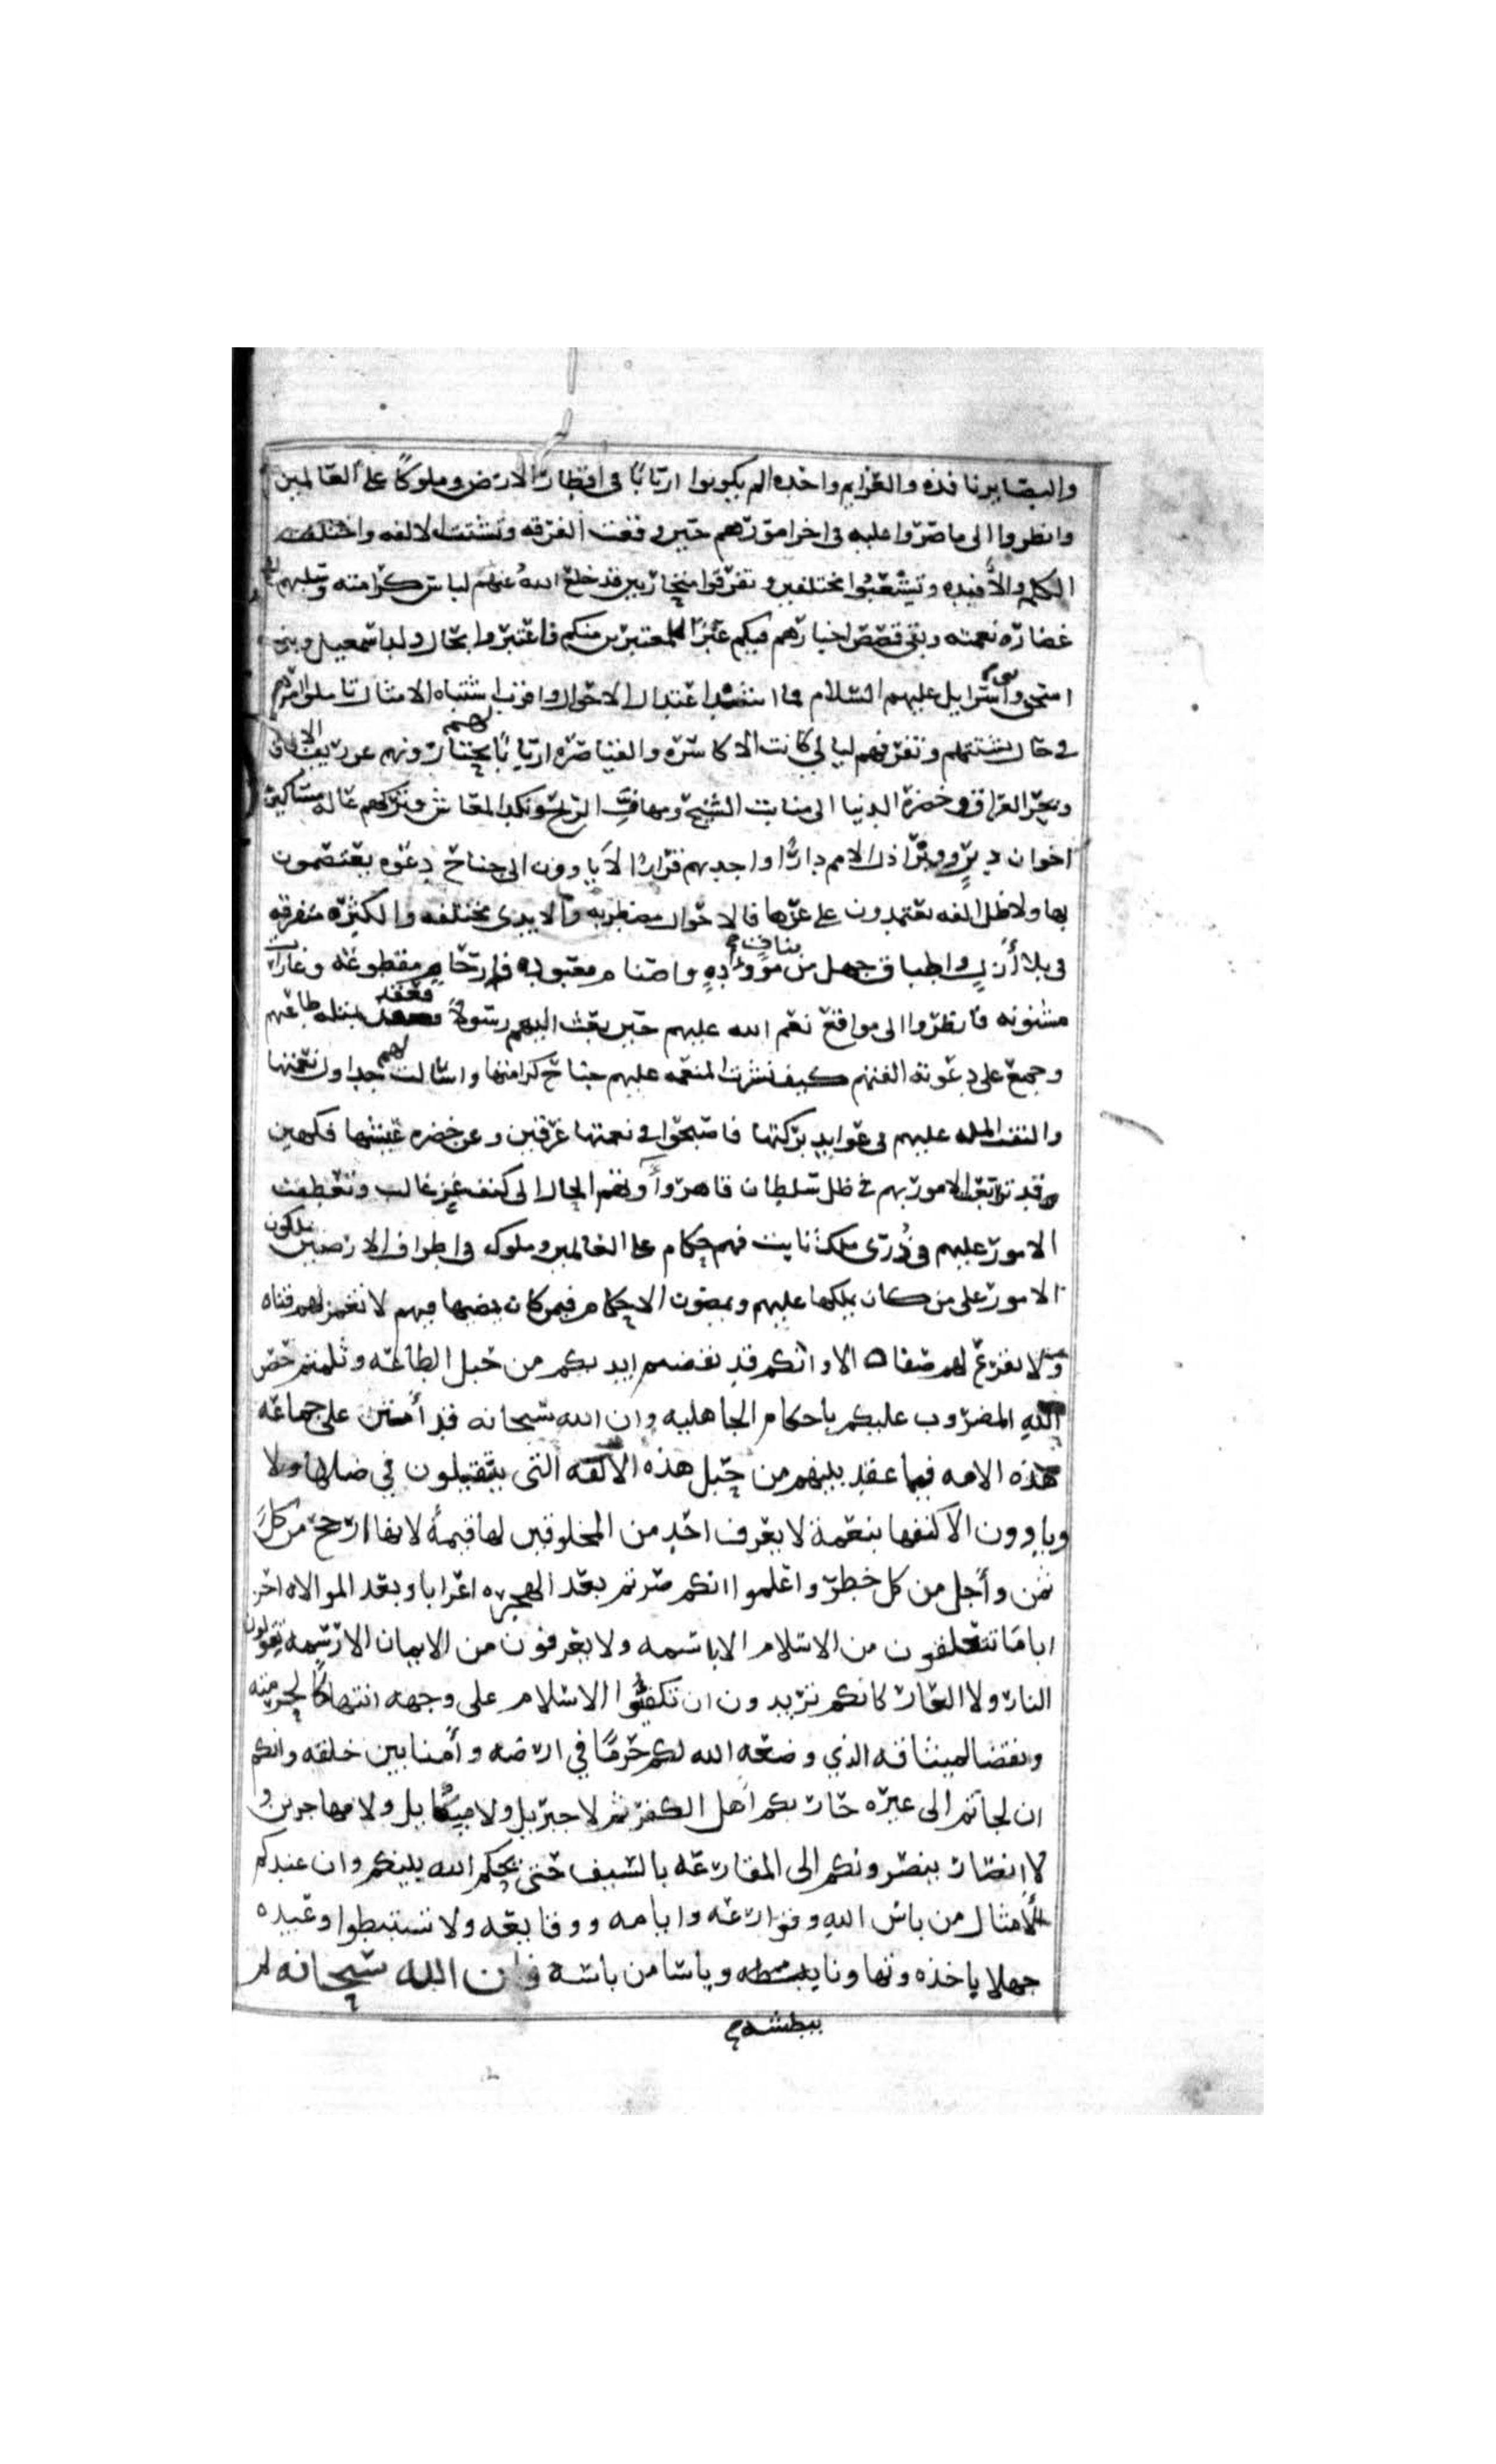 والبصاير نافذه والعزايم واحده الم يكونوا اربابًا فى اقطار الارض وملوكًا على العالمين
وانظروا الى ما صروا عليه فى اخر امورهم حين وقعت الفرقه وتشتت الالفه واختلفت
الكلم والأفيده وتشعبوا مختلفين وتفرقوا متحازبين قد خلع الله عنهم لباس كرامته وسلبهم
غضاره نعمته وبقى قصص اخبارهم فيكم عبرًا للمعتبرين منكم فاعتبروا بحال ولد اسمعيل وبنى
اسحق وبنى اسرايل عليهم السلام فما اشد اعتدال الاحوال واقرب اشتباه الامثال تاملوا امرهم
فى حال تشتتهم وتفرقهم ليالى كانت الاكاسره والقياصره اربابًا لهم يحتازونهم عن ريف الافاق
وبحر العراق وخضرة الدنيا الى منابت الشيح ومهافى الريح ونكد المعاش وتركوهم عاله مساكين
اخوان دبرٍ ووبرٍ اذل الامم دارًا واجدبهم قرارًا لا ياوون الى جناح دعوه يعتصمون
بها ولا ظل الفه يعتمدون على عزها فالاحوال مضطربه والايدى مختلفه والكثره متفرقه
فى بلاء أزل واطباق جهل من بنات موؤدهٍ واصنام معبوده وارحام مقطوعه وغارات
مشنونه فانظروا الى مواقع نعم الله عليهم حين بعث اليهم رسولًا فعقد بملته طاعتهم
وجمع على دعوته الفتهم كيف نشرت النعمه عليهم جناح كرامتها واسالت لهم جداول نعيمها
والتفت المله عليهم فى عوايد بركتها فاصبحوا فى نعمتها غرقين وعن خضره عيشها فكهين
قد تربعت الامور بهم فى ظل سلطان قاهر وأوتهم الحال الى كنف عز غالب وتعطفت
الامور عليهم فى ذُرى ملك ثابت فهم حكام على العالمين وملوك فى اطراف الارضين يملكون
الامور على من كان يملكها عليهم ويمضون الاحكام فيمن كان يمضيها فيهم لا تغمز لهم قناه
ولا تقرع لهم صفاه الا وانكم قد نفضتم ايديكم من حبل الطاعه وثلمتم حصن
اللهِ المضروب عليكم باحكام الجاهليه وان الله سبحانه قد أمتن على جماعه
هذه الامه فيما عقد بينهم من حبل هذه الألفه التى يتقيلون في ضلها ولا
وياوون الا كنفها بنعمة لا يعرف احد من المخلوقين لها قيمةً لانها ارجح من كل
ثمن وأجل من كل خطر واعلموا انكم صرتم بعد الهجره اعرابا وبعد الموالاه احز
ابا ما تتعلقون من الاسلام الا باسمه ولا يعرفون من الايمان الا رسمه تقولون
النار ولا العار كانكم تريدون ان تكفئوا الاسلام على وجهه انتهاكًا لحرمته
ونقضا لميثاقه الذي وضعه الله لكم حرمًا في ارضه وأمنا بين خلقه وانكم
ان لجاتم الى غيره حاربكم أهل الكفر ثم لا جبريل ولا ميكايل ولا مهاجرين و
لا انصار ينصرونكم الى المقارعه بالسيف حتى يحكم الله بينكم وان عندكم
الأمثال من باس اللهِ وقوارعه وايامه ووقايعه ولا تستبطوا وعيده
جهلا ياخذه وتهاونا ببطشه وياسا من باسه فان الله سبحانه لم
ببطشه